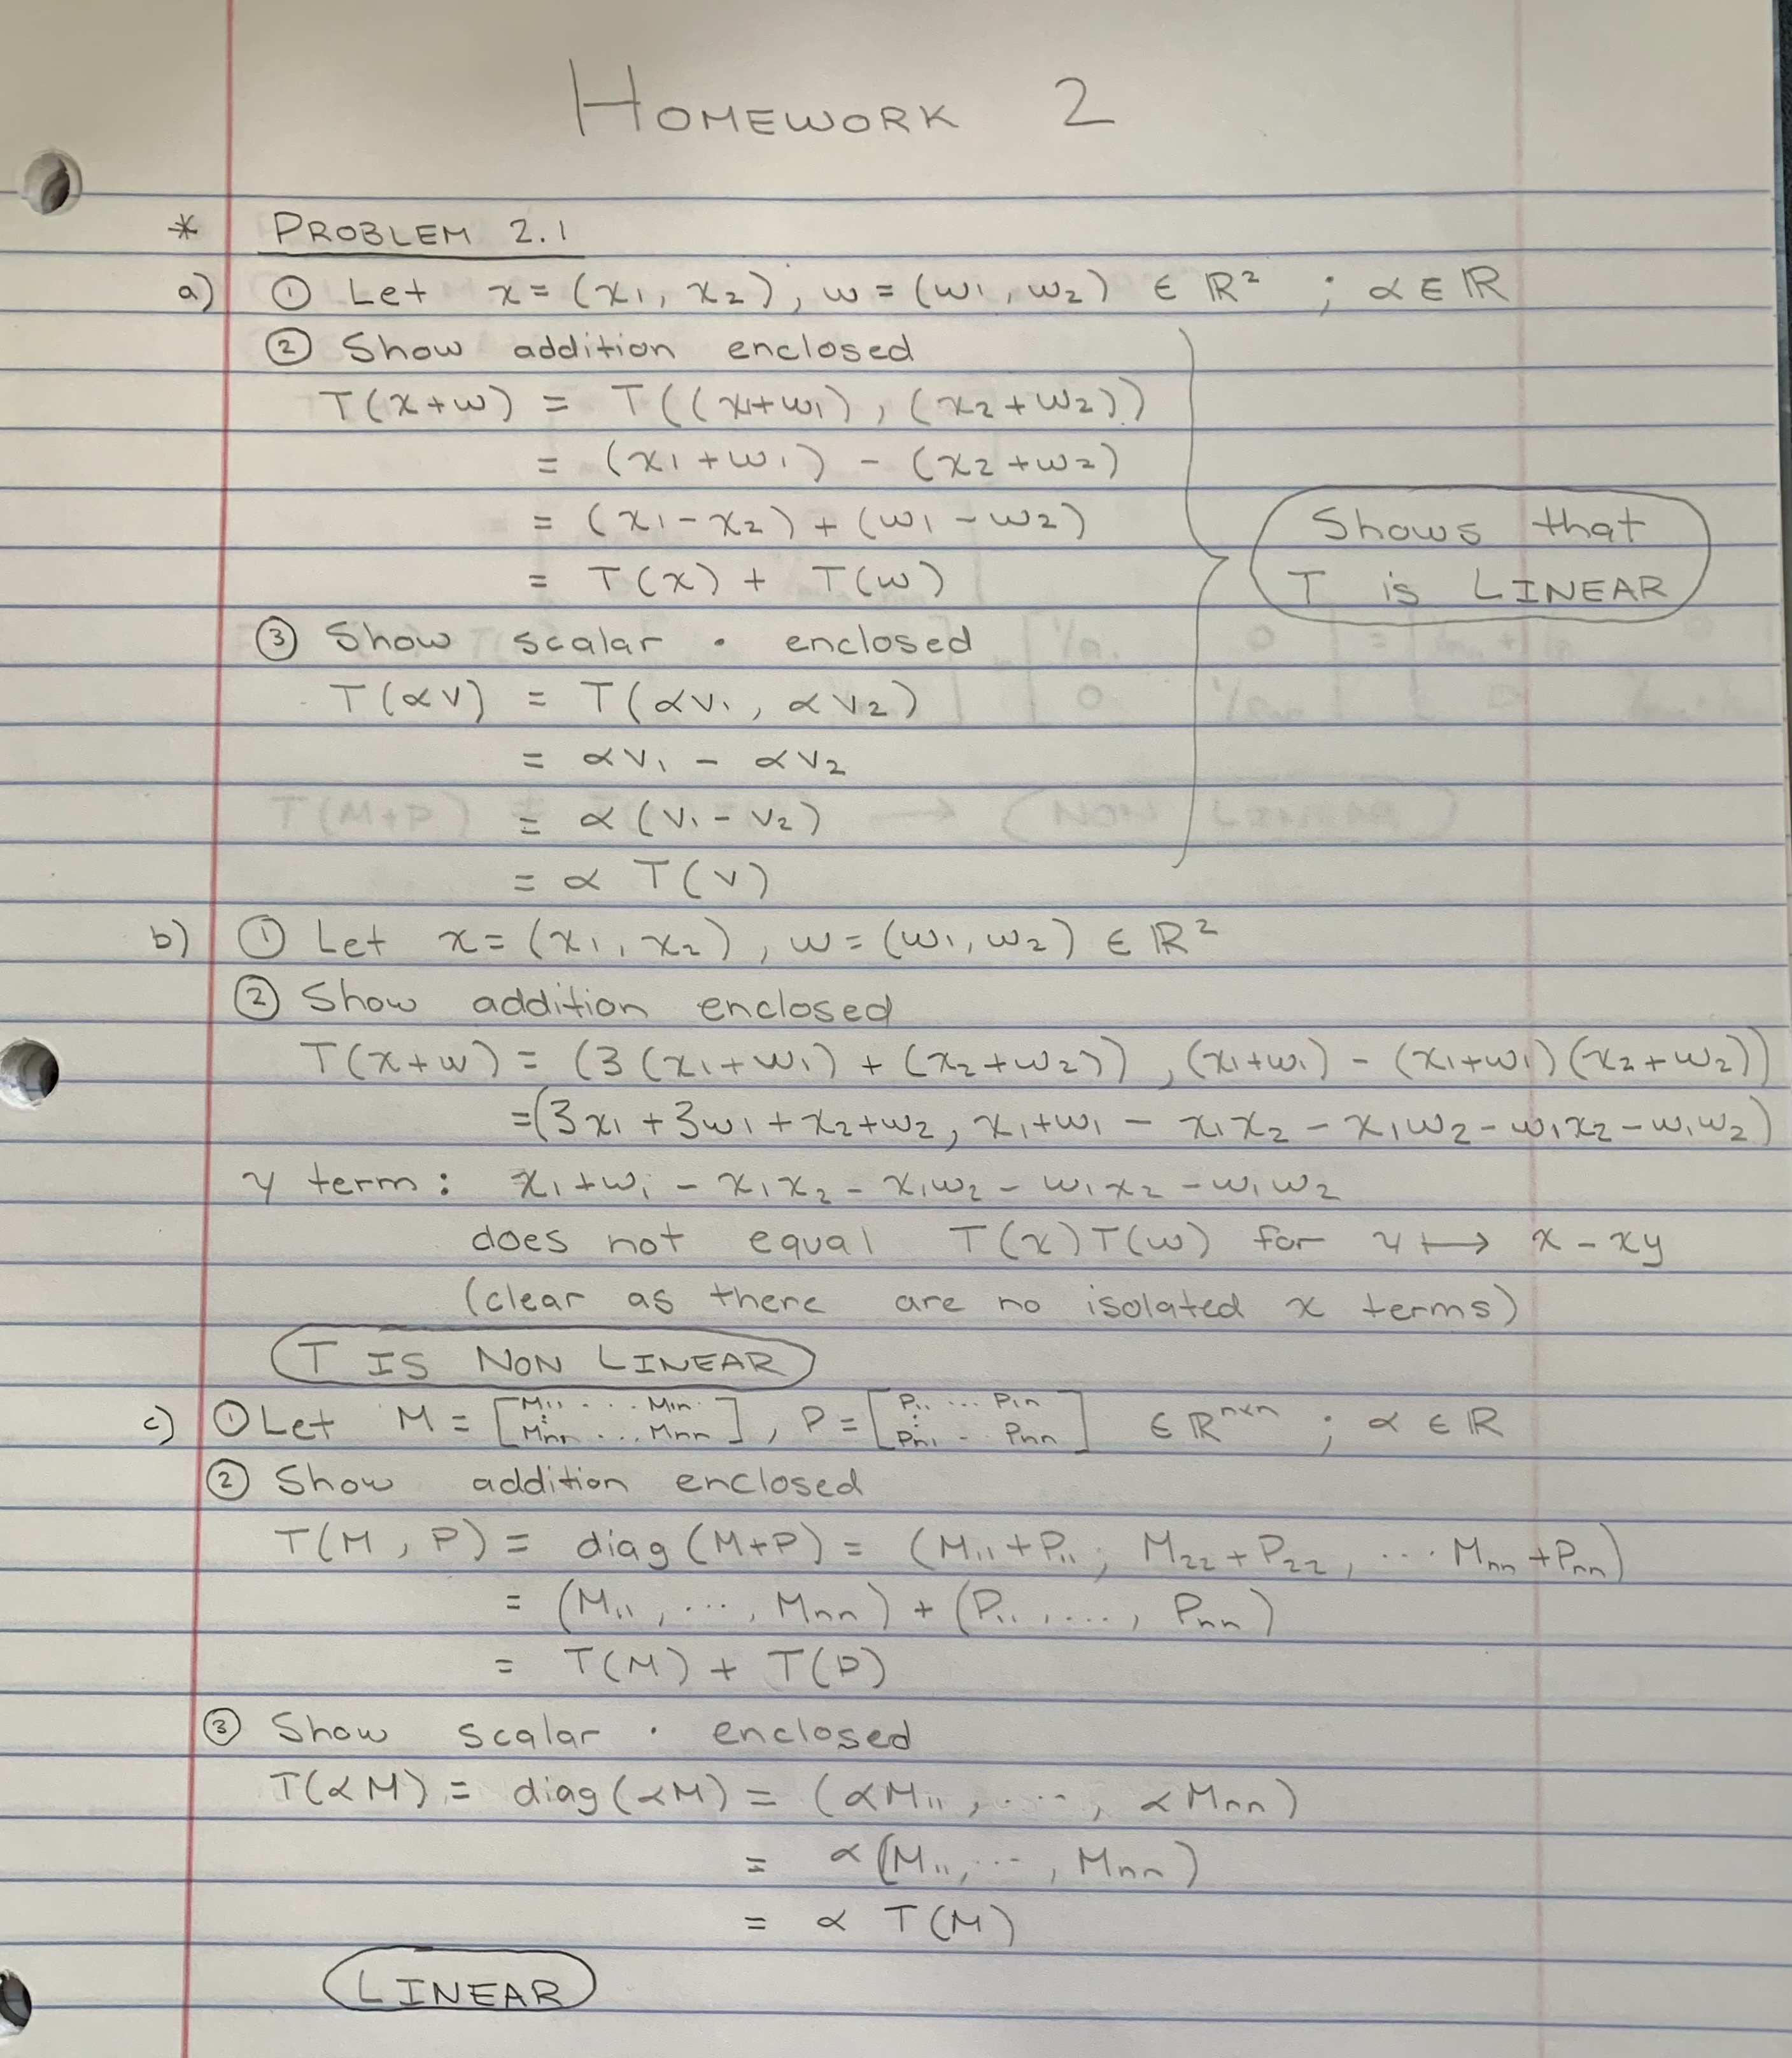 HOMEWORK 2
* PROBLEM 2.1
a) ① Let x = (x₁, x₂), w = (w₁, w₂) ∈ ℝ² ; α ∈ ℝ
② Show addition enclosed
T(x+w) = T((x₁+w₁), (x₂+w₂))
= (x₁+w₁) - (x₂+w₂)
= (x₁-x₂) + (w₁-w₂)
= T(x) + T(w)
Shows that
T is LINEAR
③ Show scalar · enclosed
T(αv) = T(αv₁, αv₂)
= αv₁ - αv₂
= α(v₁ - v₂)
= α T(v)
b) ① Let x = (x₁, x₂), w = (w₁, w₂) ∈ ℝ²
② Show addition enclosed
T(x+w) = (3(x₁+w₁) + (x₂+w₂)), (x₁+w₁) - (x₁+w₁)(x₂+w₂))
=(3x₁ + 3w₁ + x₂+w₂, x₁+w₁ - x₁x₂ - x₁w₂ - w₁x₂ - w₁w₂)
y term: x₁+w₁ - x₁x₂ - x₁w₂ - w₁x₂ - w₁w₂
does not equal T(x)T(w) for y ↦ x - xy
(clear as there are no isolated x terms)
T IS NON LINEAR
c) ① Let M = [M₁₁ ... M₁ₙ ⋮ Mₙₙ ... Mₙₙ], P = [P₁₁ ... P₁ₙ ⋮ Pₙ₁ .. Pₙₙ] ∈ ℝⁿˣⁿ ; α ∈ ℝ
② Show addition enclosed
T(M, P) = diag(M+P) = (M₁₁+P₁₁, M₂₂+P₂₂, ... Mₙₙ+Pₙₙ)
= (M₁₁, ..., Mₙₙ) + (P₁₁, ..., Pₙₙ)
= T(M) + T(P)
③ Show scalar · enclosed
T(αM) = diag(αM) = (αM₁₁, ..., αMₙₙ)
= α(M₁₁, ..., Mₙₙ)
= α T(M)
LINEAR